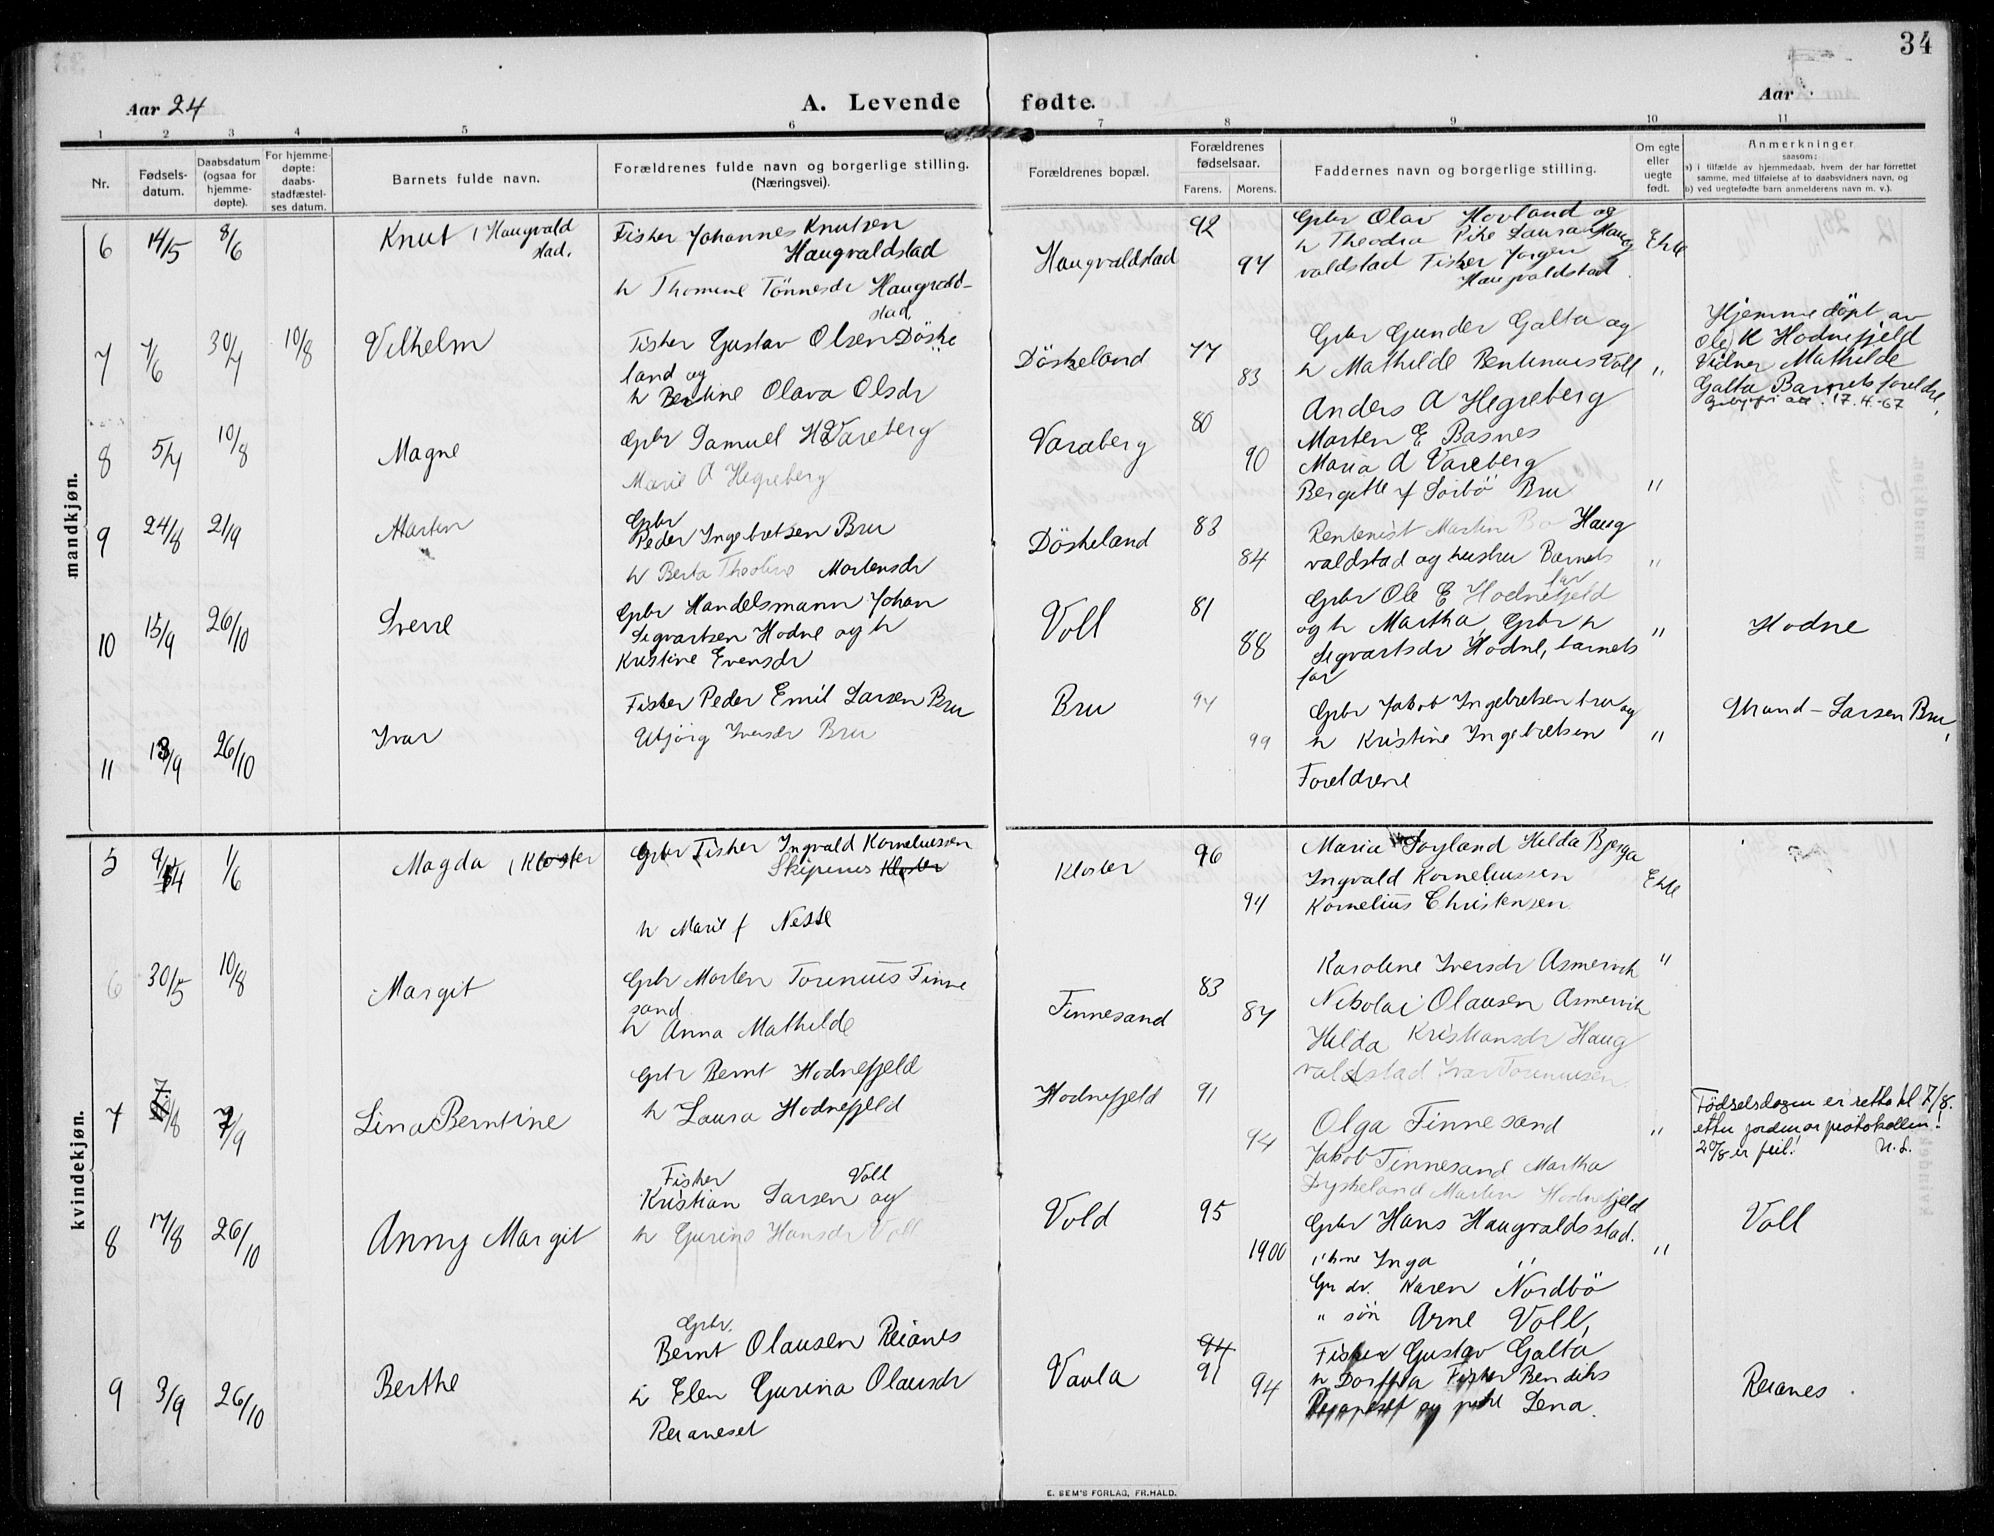 34
Aar 24
A. Levende fødte.
Aar
1 2 3 4 5 6 7 8 9 10 11
Nr.
Fødsels-
datum.
Daabsdatum
(ogsaa for
hjemme-
døpte).
For hjemme-
døpte:
daabs-
stadfæstel-
ses datum.
Barnets fulde navn.
Forældrenes fulde navn og borgerlige stilling.
(Næringsvei).
Forældrenes bopæl.
Forældrenes
fødselsaar.
Farens. Morens.
Faddernes navn og borgerlige stilling.
Om egte
eller
uegte
født.
Anmerkninger
saasom:
a) i tilfælde av hjemmedaab, hvem der har forrettet
samme, med tilføielse af to daabsvidners navn, og
b) ved uegtefødte barn anmelderens navn m. v.).
mandkjøn.
6 14/5 8/6
Knut i Haugvald
stad.
Fisker Johannes Knutsen
Haugvaldstad
h Thomine Tönnesdr Haugvald-
stad
Haugvaldstad
92
94
Gbr Olav Hovland og
h Theodra Pike Laura Haug
valdstad Fisker Jørgen
Haugvaldstad
Ekte
7 7/6 30/7 10/8
Vilhelm
Fisker Gustav Olsen Döske
land og
h Bertine Olava Olsdr
Döskeland
77
83
Gbr Gunder Galta og
h Mathilde Bentinus Voll
Anders A Hegreberg
"
Hjemmedöpt av
Ole K Hodnefjeld
Vidner Mathilde
Galta Barnets foreldre
17.4.67
8 5/7 10/8
Magne
Gbr Samuel H Vareberg
Marie A Hegreberg
Varaberg
80
90
Morten E Basnes
Maria A Vareberg
Bergitte f Sörbö Bru
"
9 24/8 21/9
Martin
Gbr
Peder Ingebretsen Bru
h Berta Theoline Mortensdr
Döskeland
83
84
Rentenist Martin Bo Haug
valdstad og hustru Barnets
far
"
10 15/9 26/10
Sverre
Gbr Handelsmann Johan
Sigvartsen Hodne og h
Kristine Evensdr
Voll
81
88
Gbr Ole E Hodnefjeld
og h Martha, Gbr h
Sigvartsdr Hodne, barnets
far
"
Hodne
11 13/9 26/10
Ivar
Fisker Peder Emil Larsen Bru
Utjörg Iversdr Bru
Bru
94
99
Gbr Jakob Ingebretsen bru og
h Kristine Ingebretsen
Foreldrene
"
Strand - Larsen Bru
kvindekjøn.
5 9/4 1/6
Magda i Kloster
Gbr Fisker Ingvald Korneliussen
Skipenes Kloster
h Marie f Nesse
Kloster
96
94
Maria Soyland Hilda Bjerga
Ingvald Korneliussen
Kornelius Christensen
Ekte
6 30/5 10/8
Margit
Gbr Morten Torenius Finne
sand
h Anna Mathilde
Finnesand
83
87
Karoline Iversdr Asmervik
Nikolai Olausen Asmervik
Hilda Kristiansdr Haug
valdstad Ivar Toreniusen
"
7 7/8 7/9
Lina Berntine
Gbr Bernt Hodnefjeld
h Laura Hodnefjeld
Hodnefjeld
91
94
Olga Finnesand
Jakob Finnesand Martha
Dyskeland Martin Hodnefjeld
"
Födselsdagen er rettet til 7/8.
etter jordmorprotokollen!
20/8 er feil! N.L.
8 17/8 26/10
Anny Margit
Fisker Voll
Kristian Larsen og
h Gurine Hansdr Voll
Vold
95
1900
Gbr Hans Haugvaldsstad.
Inga "
Gr dr. Karen Nordbö
" sön Arne Voll,
"
Voll
9 3/9 26/10
Berthe
Gbr.
Bernt Olausen Reianes
h Elen Gurina Olausdr
Reianeset
Vaula
94
91
94
Fisker Gustav Galta
h Dorthea Fisker Bendiks
Reianeset og pike Lena.
Reianes
E. SEM'S FORLAG, FR.HALD.